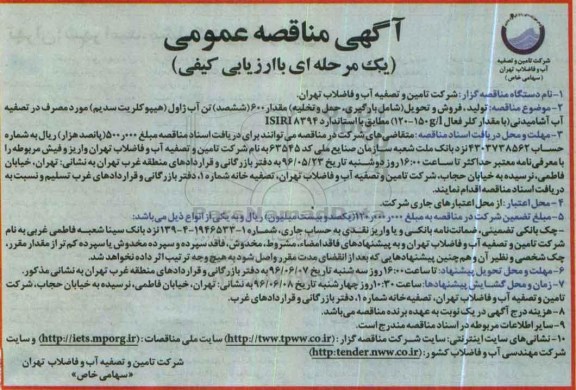 شرکت تامین و تصفیه
آب و فاضلاب تهران
(سهامی خاص)
آگهی مناقصه عمومی
(یک مرحله ای باارزیابی کیفی)
۱-نام دستگاه مناقصه گزار: شرکت تامین و تصفیه آب و فاضلاب تهران.
۲-موضوع مناقصه: تولید، فروش و تحویل(شامل بارگیری، حمل وتخلیه) مقدار ۶۰۰(ششصد) تن آب ژاول (هیپوکلریت سدیم) مورد مصرف در تصفیه
آب آشامیدنی (با مقدار کلر فعال ۱۲۰-۱۵۰g/l) مطابق با استاندارد ISIRI ۸۳۹۴
۳-مهلت و محل دریافت اسناد مناقصه: متقاضی های شرکت در مناقصه می توانند برای دریافت اسناد مناقصه مبلغ ۵۰۰٫۰۰۰(پانصد هزار) ریال به شماره
حساب ۴۳۰۴۷۳۸۵۶۲ نزد بانک ملت شعبه سازمان صنایع ملی کد ۶۳۵۴۵ به نام شرکت تامین و تصفیه آب و فاضلاب تهران واریز و فیش مربوطه را
با معرفی نامه معتبر حداکثر تا ساعت ۱۶:۰۰ روز دوشنبه تاریخ ۹۶/۰۵/۲۳ به دفتر بازرگانی و قراردادهای منطقه غرب تهران به نشانی: تهران، خیابان
فاطمی، نرسیده به خیابان حجاب، شرکت تامین و تصفیه آب و فاضلاب تهران، تصفیه خانه شماره ۱، دفتر بازرگانی و قراردادهای غرب تسلیم و نسبت به
دریافت اسناد مناقصه اقدام نمایند.
۴-محل اعتبار: از محل اعتبارهای جاری شرکت.
۵-مبلغ تضمین شرکت در مناقصه به مبلغ ۱۲۰٫۰۰۰٫۰۰۰(یکصد و بیست میلیون) ریال و به یکی از انواع ذیل می باشد:
-چک بانکی تضمینی، ضمانت نامه بانکی و یا واریز نقدی به حساب جاری، شماره ۱-۱۹۴۶۵۳۳-۴-۱۳۹ نزد بانک سینا شعبه فاطمی غربی به نام
شرکت تامین و تصفیه آب و فاضلاب تهران و به پیشنهادهای فاقد امضاء، مشروط، مخدوش، فاقد سپرده و سپرده مخدوش یا سپرده کم تر از مقدار مقرر،
چک شخصی و نظیر آن و هم چنین پیشنهادهایی که بعد از انقضای مدت مقرر واصل شود به هیچ وجه ترتیب اثر داده نخواهد شد.
۶-مهلت و محل تحویل پیشنهاد: تا ساعت ۱۶:۰۰ روز سه شنبه تاریخ ۹۶/۰۶/۰۷ به دفتر بازرگانی و قراردادهای منطقه غرب تهران به نشانی مذکور.
۷-زمان و محل گشایش پیشنهادها: ساعت ۱۰:۳۰ روز چهارشنبه تاریخ ۹۶/۰۶/۰۸ به نشانی: تهران، خیابان فاطمی، نرسیده به خیابان حجاب، شرکت
تامین و تصفیه آب و فاضلاب تهران، تصفیه خانه شماره ۱، دفتر بازرگانی و قراردادهای غرب.
۸-هزینه درج آگهی در یک نوبت به عهده برنده مناقصه می باشد.
۹-سایر اطلاعات مربوطه در اسناد مناقصه مندرج است.
۱۰-نشانی های سایت اینترنتی: سایت شرکت مناقصه گزار: (http://tww.tpww.co.ir) سایت ملی مناقصات: (http://iets.mporg.ir) و سایت
شرکت مهندسی آب و فاضلاب کشور: (http:tender.nww.co.ir)
شرکت تامین و تصفیه آب و فاضلاب تهران
«سهامی خاص»